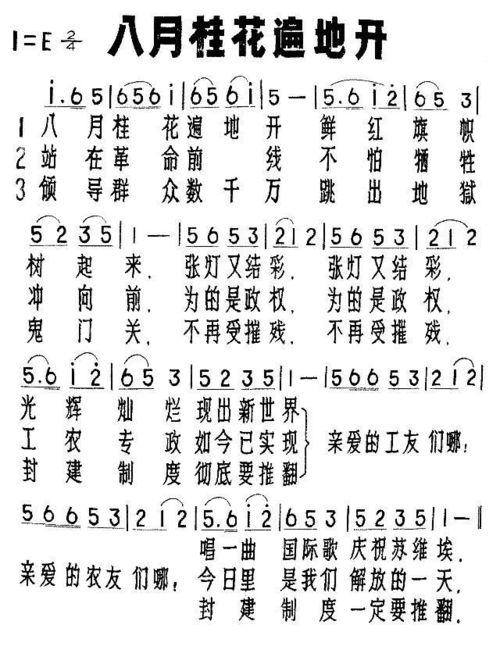 1=E 2/4 八月桂花遍地开
i.65|656i|656i|5—|5.6i2|653|
1八月桂花遍地开鲜红旗帜
2站在革命前线不怕牺牲
3领导群众数千万跳出地狱
5235|1—|5653|212|5653|212|
树起来,张灯又结彩,张灯又结彩,
冲向前,为的是政权,为的是政权,
鬼门关,不再受摧残,不再受摧残,
5.6i2|653|5235|1—|56653|212|
光辉灿烂现出新世界
工农专政如今已实现 亲爱的工友们哪!
封建制度彻底要推翻
56653|212|5.6i2|653|5235|1—‖
唱一曲国际歌庆祝苏维埃.
亲爱的农友们哪!今日里是我们解放的一天,
封建制度一定要推翻.